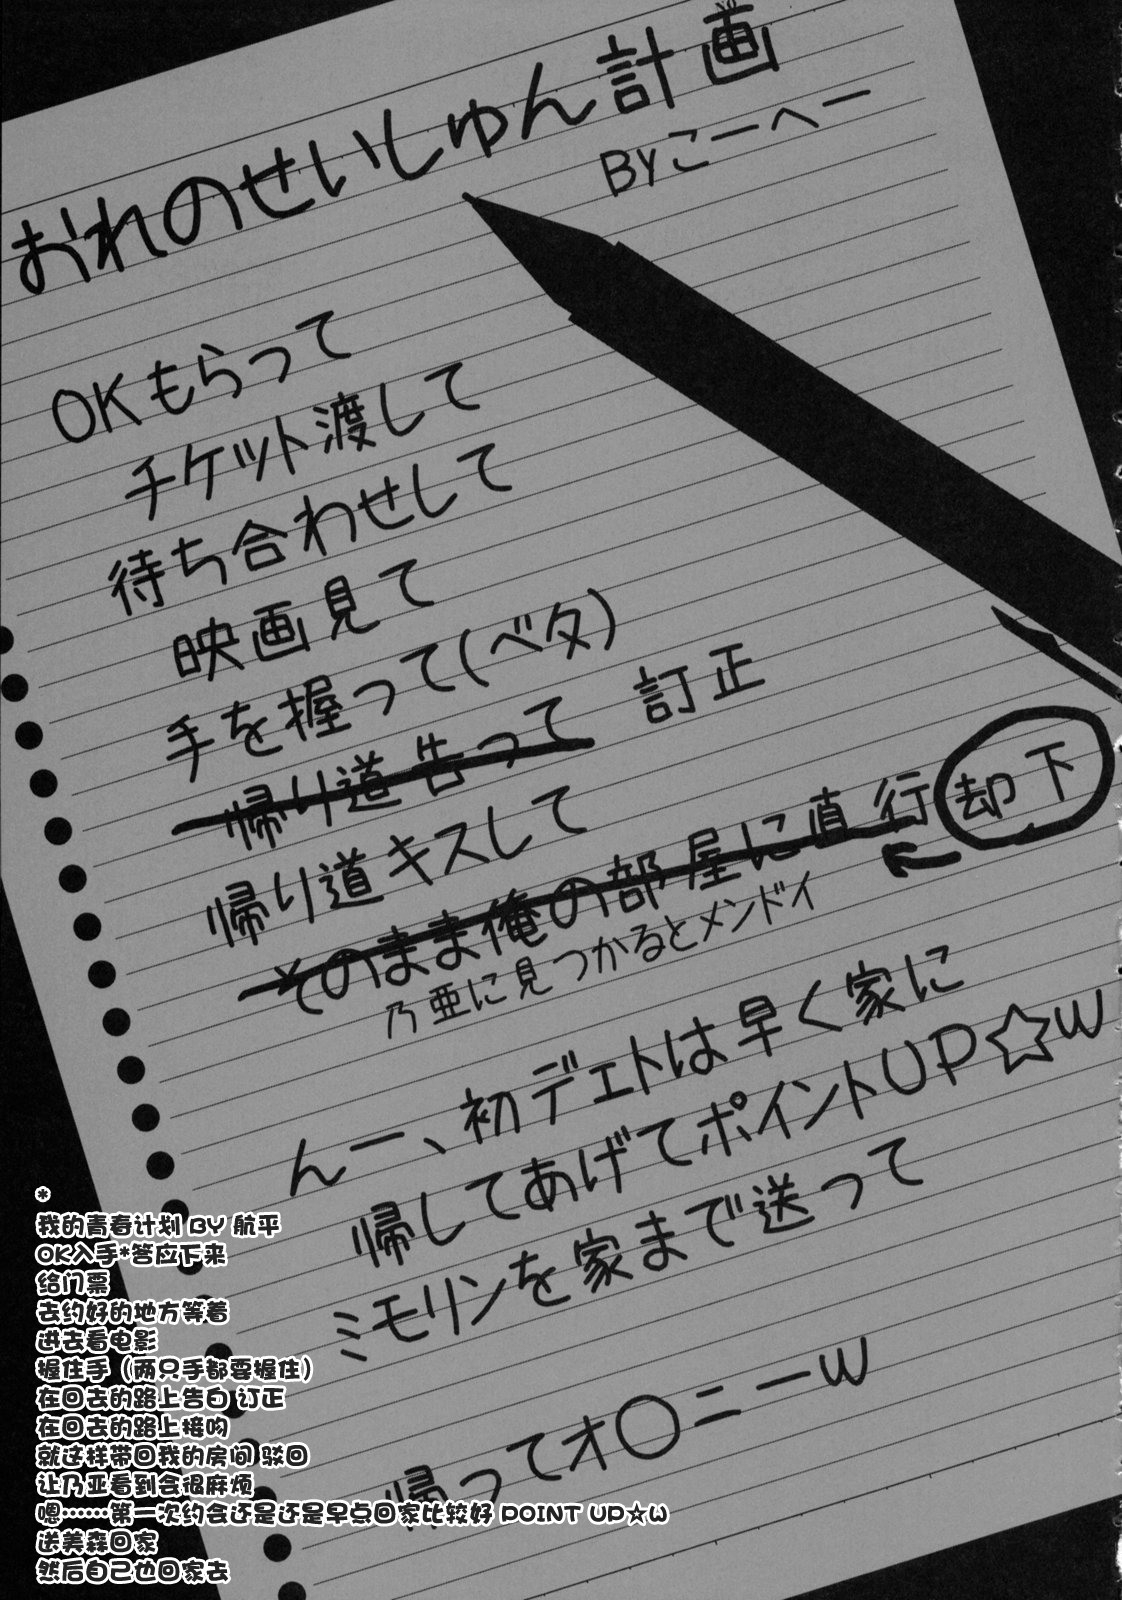 おれのせいしゅん計画
BYこーへー
OKもらって
チケット渡して
待ち合わせして
映画見て
手を握って(ベタ)
帰り道告って 訂正
帰り道キスして
そのまま俺の部屋に直行 却下
乃亜に見つかるとメンドイ
んー、初デェトは早く家に
帰してあげてポイントUP☆W
ミモリンを家まで送って
帰ってオ〇ニーW
*
我的青春计划 BY 航平
OK入手*答应下来
给门票
去约好的地方等着
进去看电影
握住手（两只手都要握住）
在回去的路上告白 订正
在回去的路上接吻
就这样带回我的房间 驳回
让乃亚看到会很麻烦
嗯……第一次约会还是还是早点回家比较好 POINT UP☆W
送美森回家
然后自己也回家去